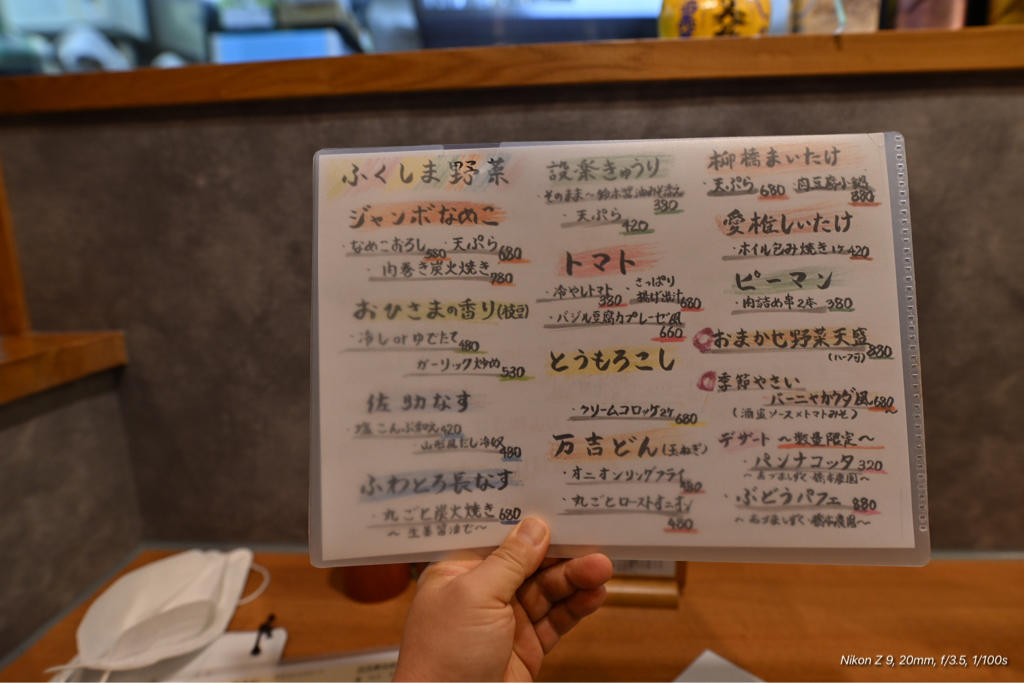 ふくしま野菜
ジャンボなめこ
・なめこおろし580 ・天ぷら680
・肉巻き炭火焼き780
おひさまの香り(枝豆)
・冷しorゆでたて480
ガーリック炒め530
佐助なす
・塩こんぶ和え420
山形風だし冷奴480
ふわとろ長なす
・丸ごと炭火焼き680
〜生姜醤油で〜
設楽きゅうり
そのまま〜鈴木醤油みそ添え380
・天ぷら420
トマト
・冷やしトマト380 ・さっぱり揚げ出汁680
・バジル豆腐カプレーゼ風660
とうもろこし
・クリームコロッケ2ケ680
万吉どん(玉ねぎ)
・オニオンリングフライ
・丸ごとローストオニオン480
柳橋まいたけ
・天ぷら680 ・肉豆腐小鍋880
愛椎しいたけ
・ホイル包み焼き1ケ420
ピーマン
・肉詰め串2本380
おまかせ野菜天盛880
(ハーフ可)
季節やさい
バーニャカウダ風680
(酒盗ソース×トマトみそ)
デザート 〜数量限定〜
・パンナコッタ320
〜あづましずく・橋本農園〜
・ぶどうパフェ880
〜あづましずく・橋本農園〜
Nikon Z 9, 20mm, f/3.5, 1/100s